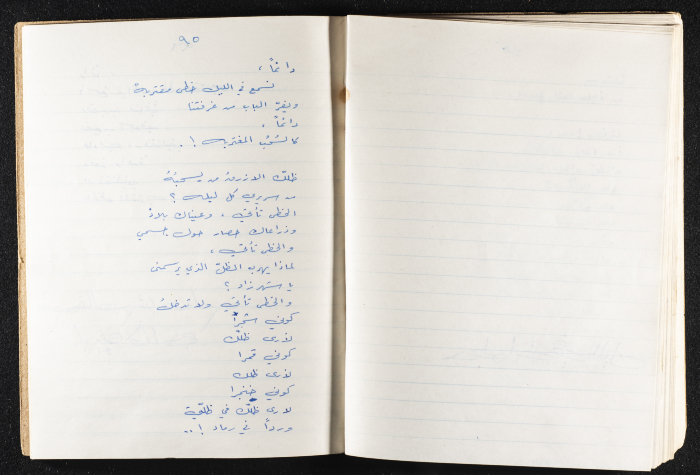 ٩٥
دائماً ،
نسمع في الليل خطى مقتربة
ويفرّ الباب من غرفتنا
دائماً ،
كالسُّحُبِ المغتربه !.
ظلّك الازرقُ من يسحبُهُ
من سريري كل ليله ؟
الخطى تأتي ، وعيناك بلادُ
وذراعاك حصار حول جسمي
والخطى تأتي ،
لماذا يهرب الظلّ الذي يرسمني
يا شهرزاد ؟
والخطى تأتي ولا تدخلُ
كوني شجراً
لأرى ظلّك
كوني قمرا
لأرى ظلك
كوني خنجرا
لارى ظلّك في ظلّي
ورداً في رماد !..